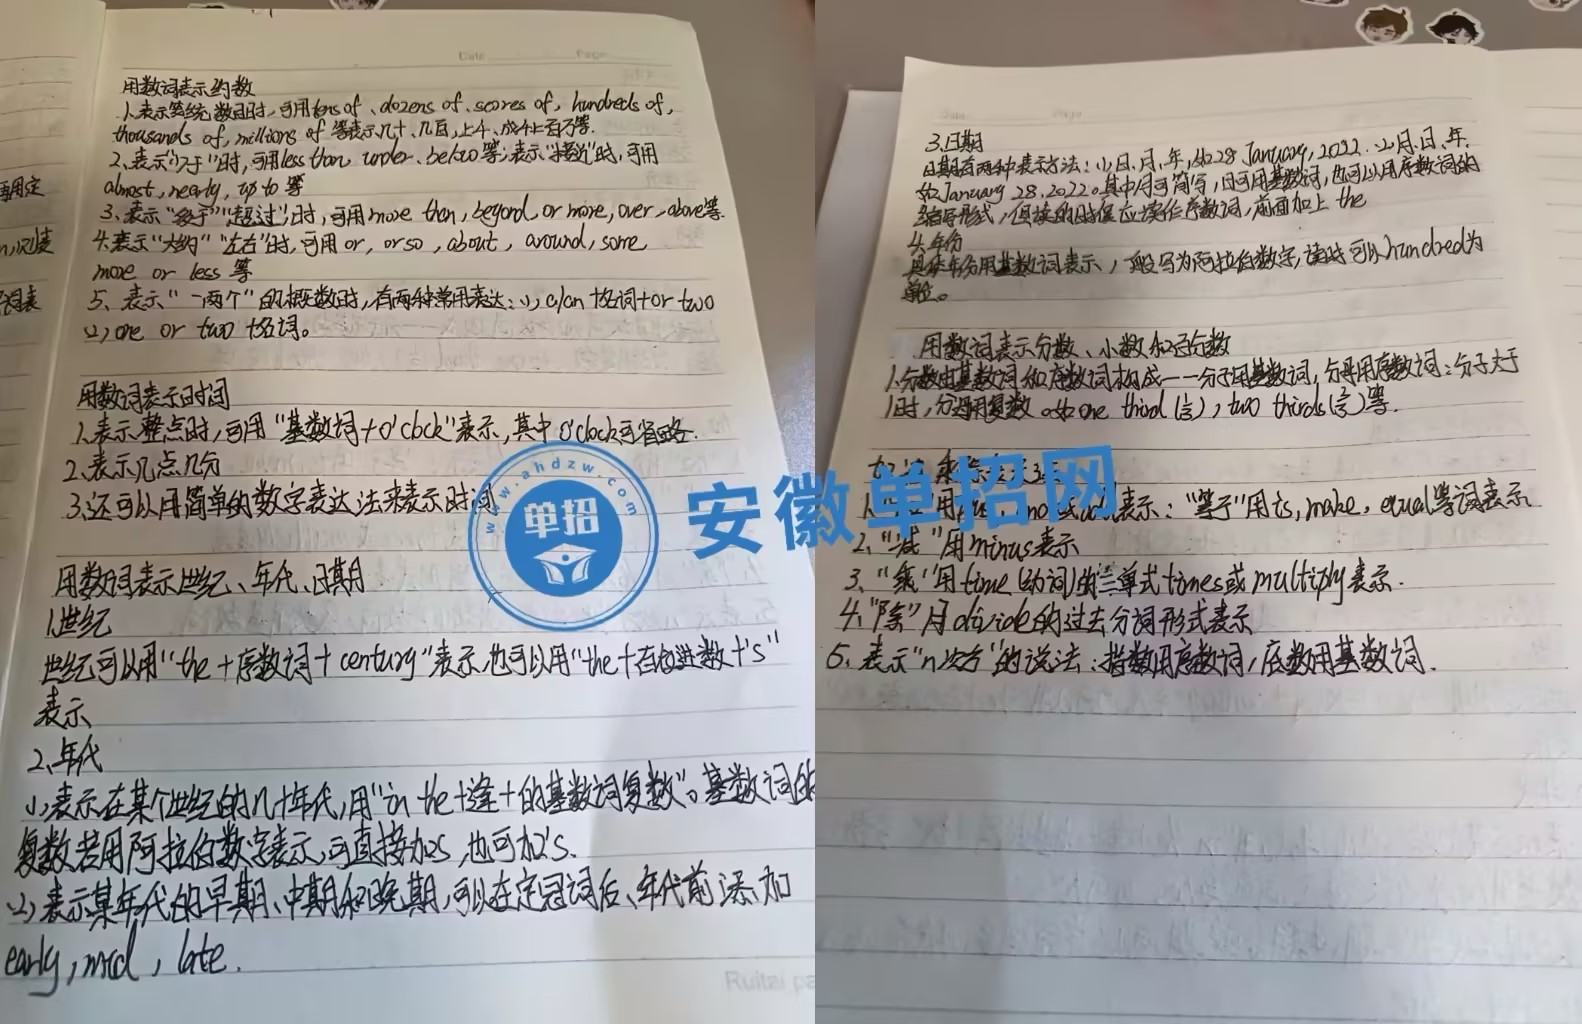 Date Page
用数词表示约数
1.表示笼统数目时,可用tens of、dozens of、scores of, hundreds of,
thousands of, millions of 等表示几十、几百,上千、成千上百万等.
2、表示"少于"时,可用less than、under、below等;表示"接近"时,可用
almost, nearly, up to 等
3、表示"多于""超过"时,可用more than, beyond, or more, over、above等.
4.表示"大约""左右"时,可用or, or so, about, around, some,
more or less 等
5、表示"一两个"的概数时,有两种常用表达:(1), a/an+名词+or two
(2), one or two+名词。
用数词表示时间
1.表示整点时,可用"基数词+o'clock"表示,其中o'clock可省略.
2.表示几点几分
3.还可以用简单的数字表达法来表示时间
用数词表示世纪、年代、日期
1.世纪
世纪可以用"the+序数词+century"表示,也可以用"the+百位进数+'s"
表示
2.年代
(1)表示在某个世纪的几十年代,用"in the+逢十的基数词复数"。基数词的
复数若用阿拉伯数字表示,可直接加s,也可加's.
(2)表示某年代的早期、中期和晚期,可以在定冠词后、年代前添加
early, mid, late.
Ruitai pa
3.日期
日期有两种表示方法:(1)日、月、年,如28 January, 2022.(2)月、日、年.
如January 28, 2022。其中月可简写,日可用基数词,也可以用序数词的
缩写形式,但读的时候应读作序数词,前面加上 the
4.年份
具体年份用基数词表示,一般写为阿拉伯数字,读时可以hundred为
单位。
用数词表示分数、小数和百分数
1.分数由基数词和序数词构成——分子用基数词,分母用序数词:分子大于
1时,分母用复数。如one third(1/3), two thirds(2/3)等.
表示:"等于"用is, make, equal等词表示
2、"减"用minus表示
3、"乘"用time(动词)的三单式times或multiply表示.
4."除"用divide的过去分词形式表示
5、表示"n次方"的说法:指数用序数词,底数用基数词.
www.ahdzw.com
单招
安徽单招网